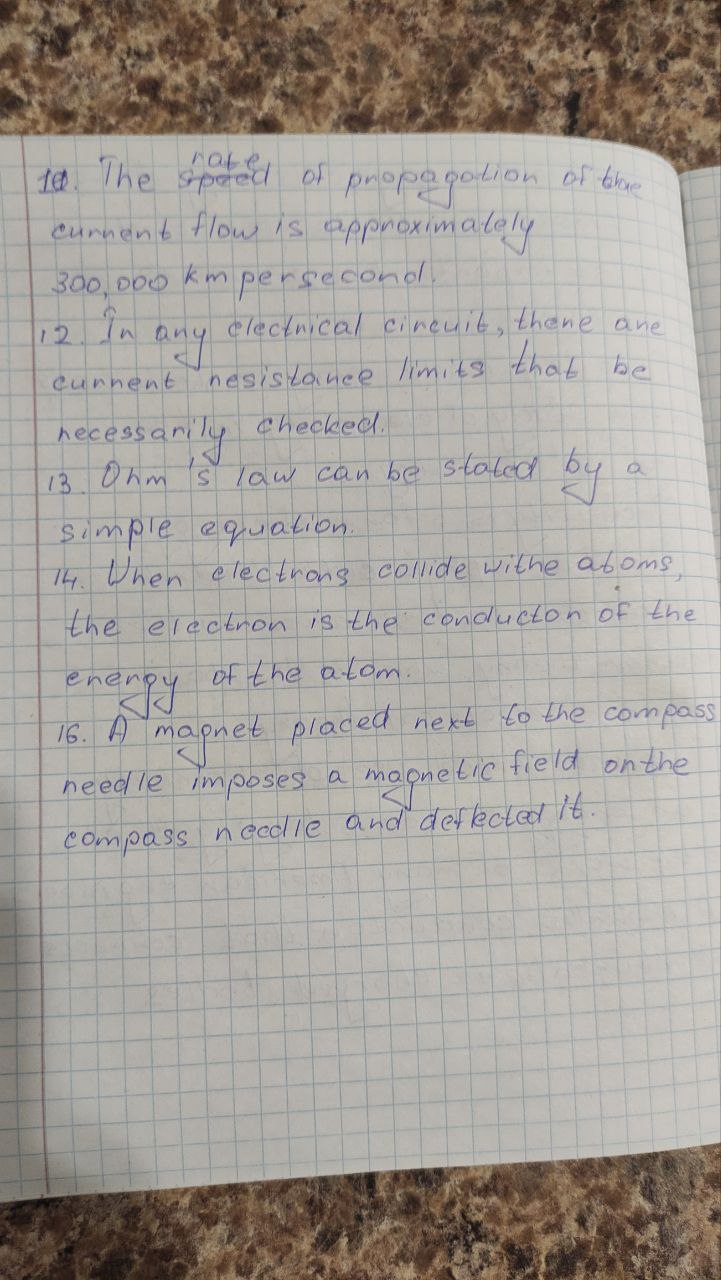 rate
11. The speed of propagation of the
current flow is approximately
300,000 km per second.
12. In any electrical circuit, there are
current resistance limits that be
necessarily checked.
13. Ohm's law can be stated by a
simple equation.
14. When electrons collide withe atoms,
the electron is the conductor of the
energy of the atom.
16. A magnet placed next to the compass
needle imposes a magnetic field on the
compass needle and deflected it.